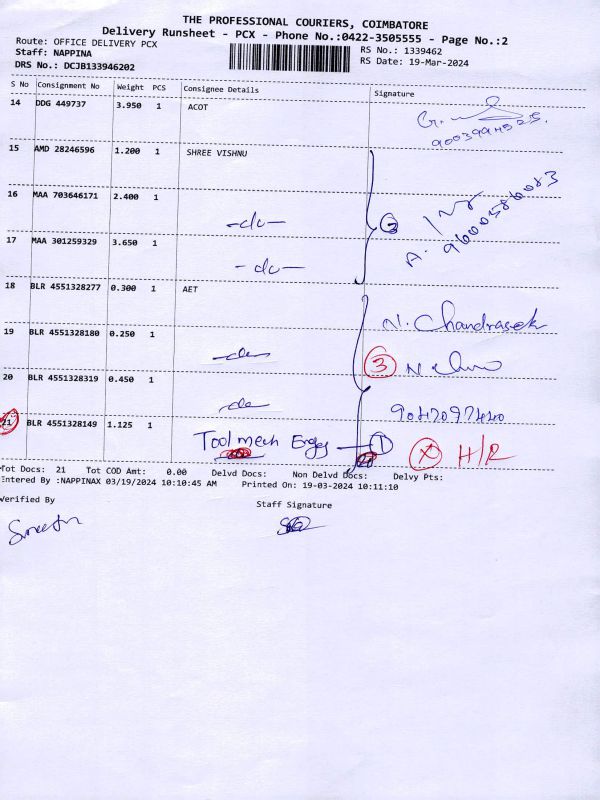 THE PROFESSIONAL COURIERS, COIMBATORE
Delivery Runsheet - PCX - Phone No.:0422-3505555 - Page No.:2
Route: OFFICE DELIVERY PCX
RS No.: 1339462
Staff: NAPPINA
RS Date: 19-Mar-2024
DRS No.: DCJB133946202
S No Consignment No Weight PCS Consignee Details Signature
14 DDG 449737 3.950 1 ACOT
15 AMD 28246596 1.200 1 SHREE VISHNU
16 MAA 703646171 2.400 1
-do-
A. 9600586083
17 MAA 301259329 3.650 1
-do-
18 BLR 4551328277 0.300 1 AET
N. Chandrasek
19 BLR 4551328180 0.250 1
-do-
3
20 BLR 4551328319 0.450 1
-do-
21 BLR 4551328149 1.125 1
Toolmech Enggs 1
X H/R
Tot Docs: 21 Tot COD Amt: 0.00 Delvd Docs: Non Delvd Docs: Delvy Pts:
Entered By :NAPPINAX 03/19/2024 10:10:45 AM Printed On: 19-03-2024 10:11:10
Verified By
Staff Signature